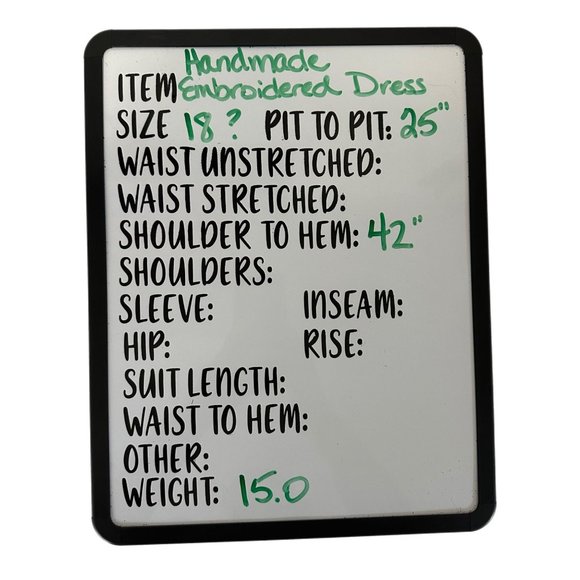 Handmade
ITEM Embroidered Dress
SIZE 18? PIT TO PIT: 25"
WAIST UNSTRETCHED:
WAIST STRETCHED:
SHOULDER TO HEM: 42"
SHOULDERS:
SLEEVE: INSEAM:
HIP: RISE:
SUIT LENGTH:
WAIST TO HEM:
OTHER:
WEIGHT: 15.0